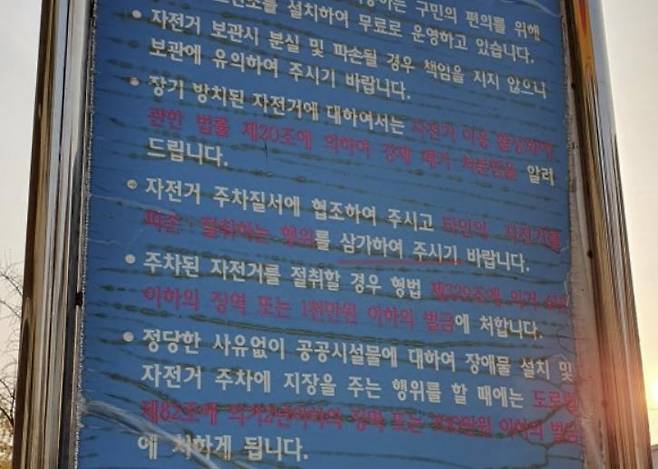 설치하여 무료로 운영하고 있습니다. 구민의 편의를 위해
• 자전거 보관시 분실 및 파손될 경우 책임을 지지 않으니
보관에 유의하여 주시기 바랍니다.
• 장기 방치된 자전거에 대하여서는 자전거 이용 활성화에
관한 법률 제20조에 의하여 강제 매각 처분됨을 알려
드립니다.
• 자전거 주차질서에 협조하여 주시고 타인의 자전거를
파손·절취하는 행위를 삼가하여 주시기 바랍니다.
• 주차된 자전거를 절취할 경우 형법 제329조에 의거
이하의 징역 또는 1천만원 이하의 벌금에 처합니다.
• 정당한 사유없이 공공시설물에 대하여 장애물 설치 및
자전거 주차에 지장을 주는 행위를 할 때에는 도로법
제82조에 의거 2년이하의 징역 또는 이하의 벌금
에 처하게 됩니다.